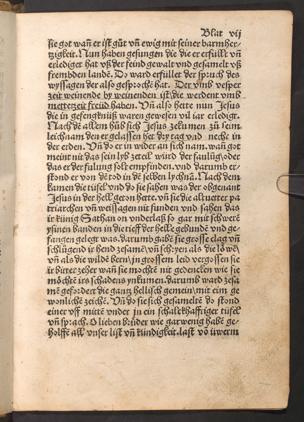 Blat vij
sie got wañ er ist gůt vñ ewig mit seiner barmher-
tzigkeit. Nun haben gesungen die die er erfüllt vñ
erlediget hat vß der feind gewalt vnd gesamelt vß
frembden landẽ. Do ward erfüllet der spruch des
wyssagen der also gesprochẽ hat. Der vmb vesper
zeit weinende by weinenden ist, die werdent vmb
mettezeit freüd haben. Vñ also hette nun Jesus
die in gefengknüß waren gewesen vil iar erlediget.
Nach dẽ allem hůb sich Jesus zekumen zů seim
leichnam den er gelassen het dry tag vnd necht in
der erden. Vñ do er in wider an sich nam, wañ got
meint nit das sein lyb zeteil wird der faulung, oder
das er der fülung solt empfinden, vnd darumb er-
stond er von dẽ tod in dẽ selben lychnã. Nach dem
kamen die tüfel vnd do sie sahen was der obgenant
Jesus in der hell geton hette, vñ sie die altuetter pa
triarchen vñ weissagen nit funden vnd sahen das
ir künig Sathan on vnderlaß so gar mit schwerẽ
ysinen banden in die tieff der hellẽ gebundẽ vnd ge-
fangen gelegt was, darumb gabẽ sie grosse klag vñ
schlůgend ir hend zesamẽ vñ schryen als die löwẽ,
vñ als die wilde bern, in grossem leid vergossen sie
ir bitter zeher wañ sie mochtẽ nit gedencken wie sie
möchtẽ irs schadens ynkumen, darumb ward zesa
mẽ gefordert die gantz hellisch gemein, mit eim ge
wonliche zeichẽ. Vñ do sie sich gesameltẽ do stond
einer vff mittẽ vnder jn ein schalckhafftiger tüfel
vñ sprach. O lieben brüder wie gar wenig habẽ ge-
holffẽ all vnser list vñ kündigkeit, last vö üwerm